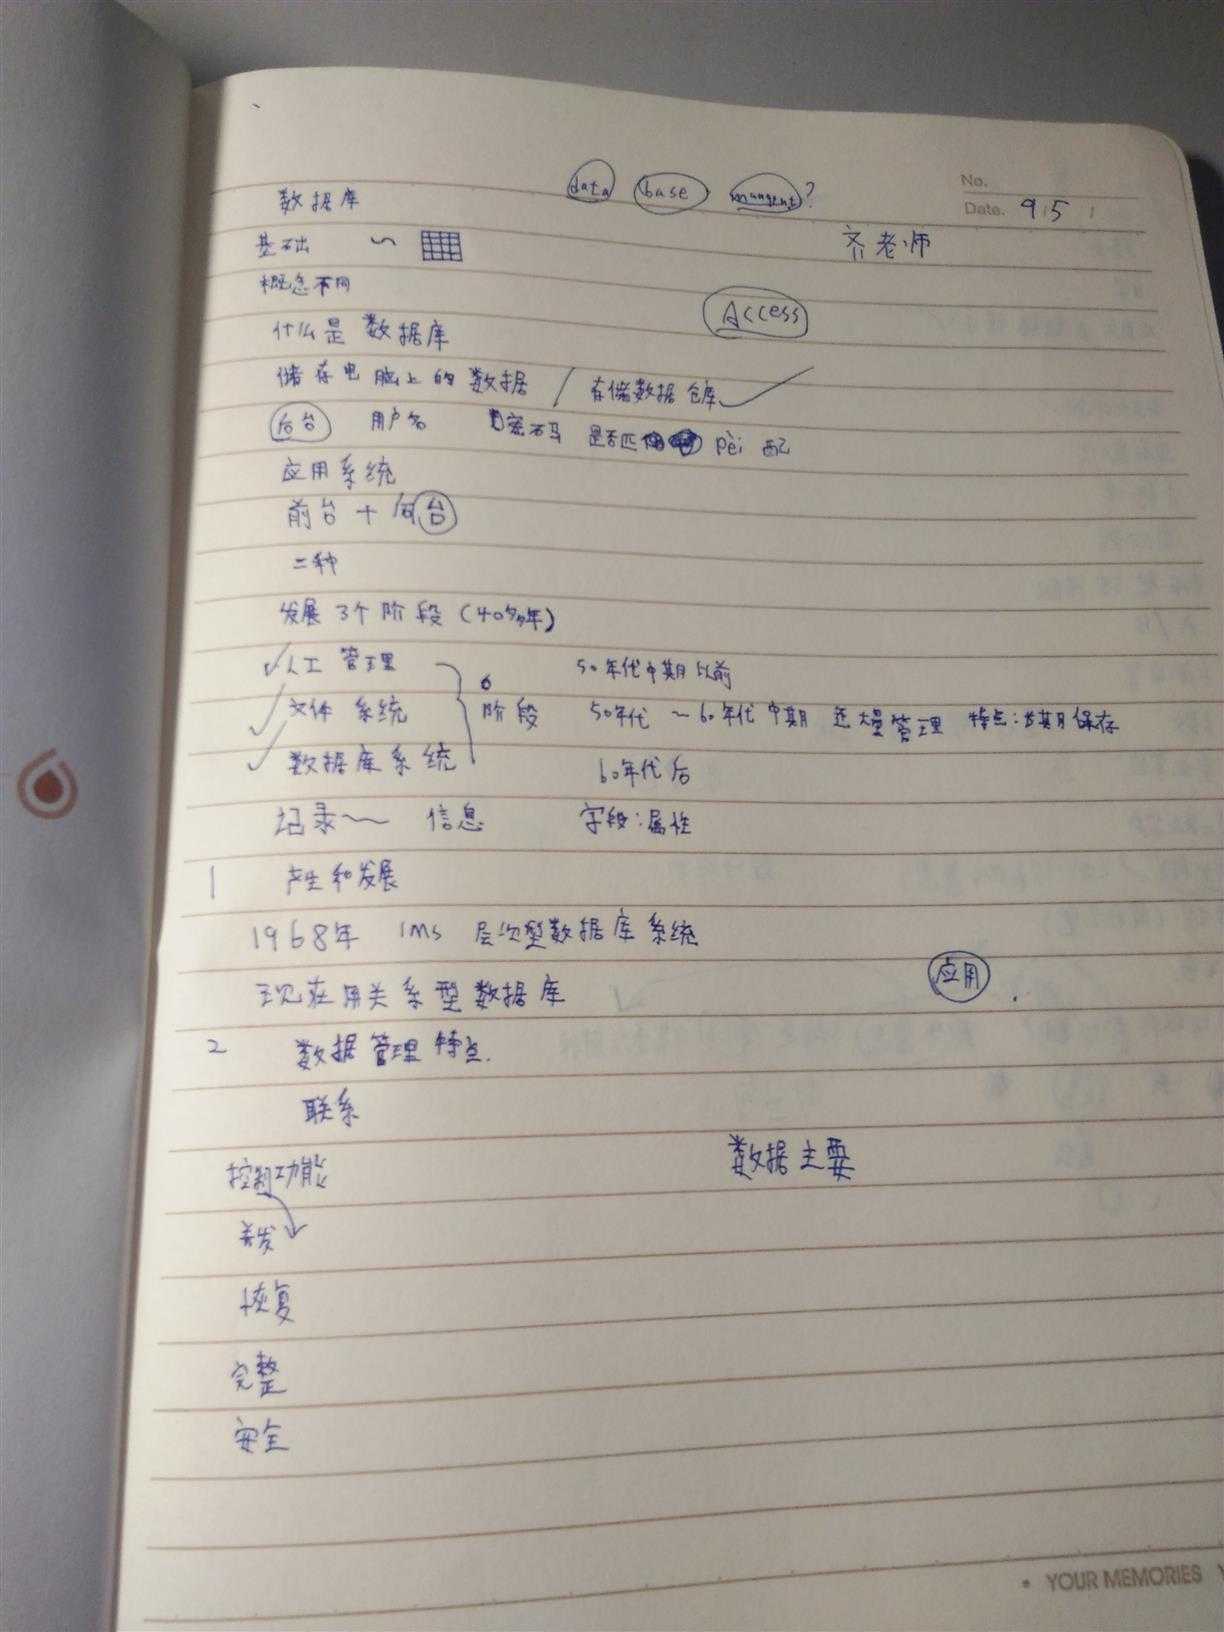 No.
data base mangent?
Date. 9 5
数据库
齐老师
基础 ~
概念不同
Access
什么是数据库
储存电脑上的数据 / 存储数据仓库
后台 用户名 密码 是否匹 pèi 配
应用系统
前台 + 后台
二种
发展 3个阶段 (40多年)
人工管理 50年代中期以前
文件系统 阶段 50年代 ~ 60年代中期 大量管理 特点:长期保存
数据库系统 60年代后
记录~ 信息 字段:属性
1 产生和发展
1968年 IMS 层次型数据库系统
现在用关系型数据库 应用
2 数据管理特点.
联系
数据主要
控制功能
并发
恢复
完整
安全
YOUR MEMORIES